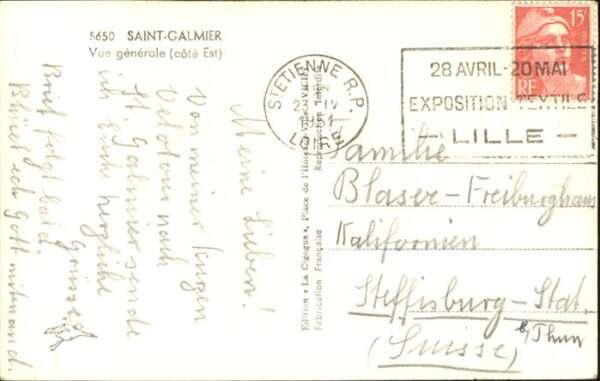 5650 SAINT-GALMIER
Vue générale (côté Est)
Meine Lieben!
Von meiner kurzen
Velotour nach
St. Galmier sende
ich Euch herzliche
Grüsse
Brief folgt bald.
Bhüet ech Gott mitenand.
Edition « La Cigogne », Place de l'Hôtel
Fabrication Française
Reproduction Interdite
ST ETIENNE R.P.
23 -IV
1951
LOIRE
28 AVRIL-20 MAI
EXPOSITION TEXTILE
-LILLE-
15F
RF
Familie
Blaser-Freiburghaus
Kalifornien
Steffisburg-Stat.
b/Thun
(Suisse)